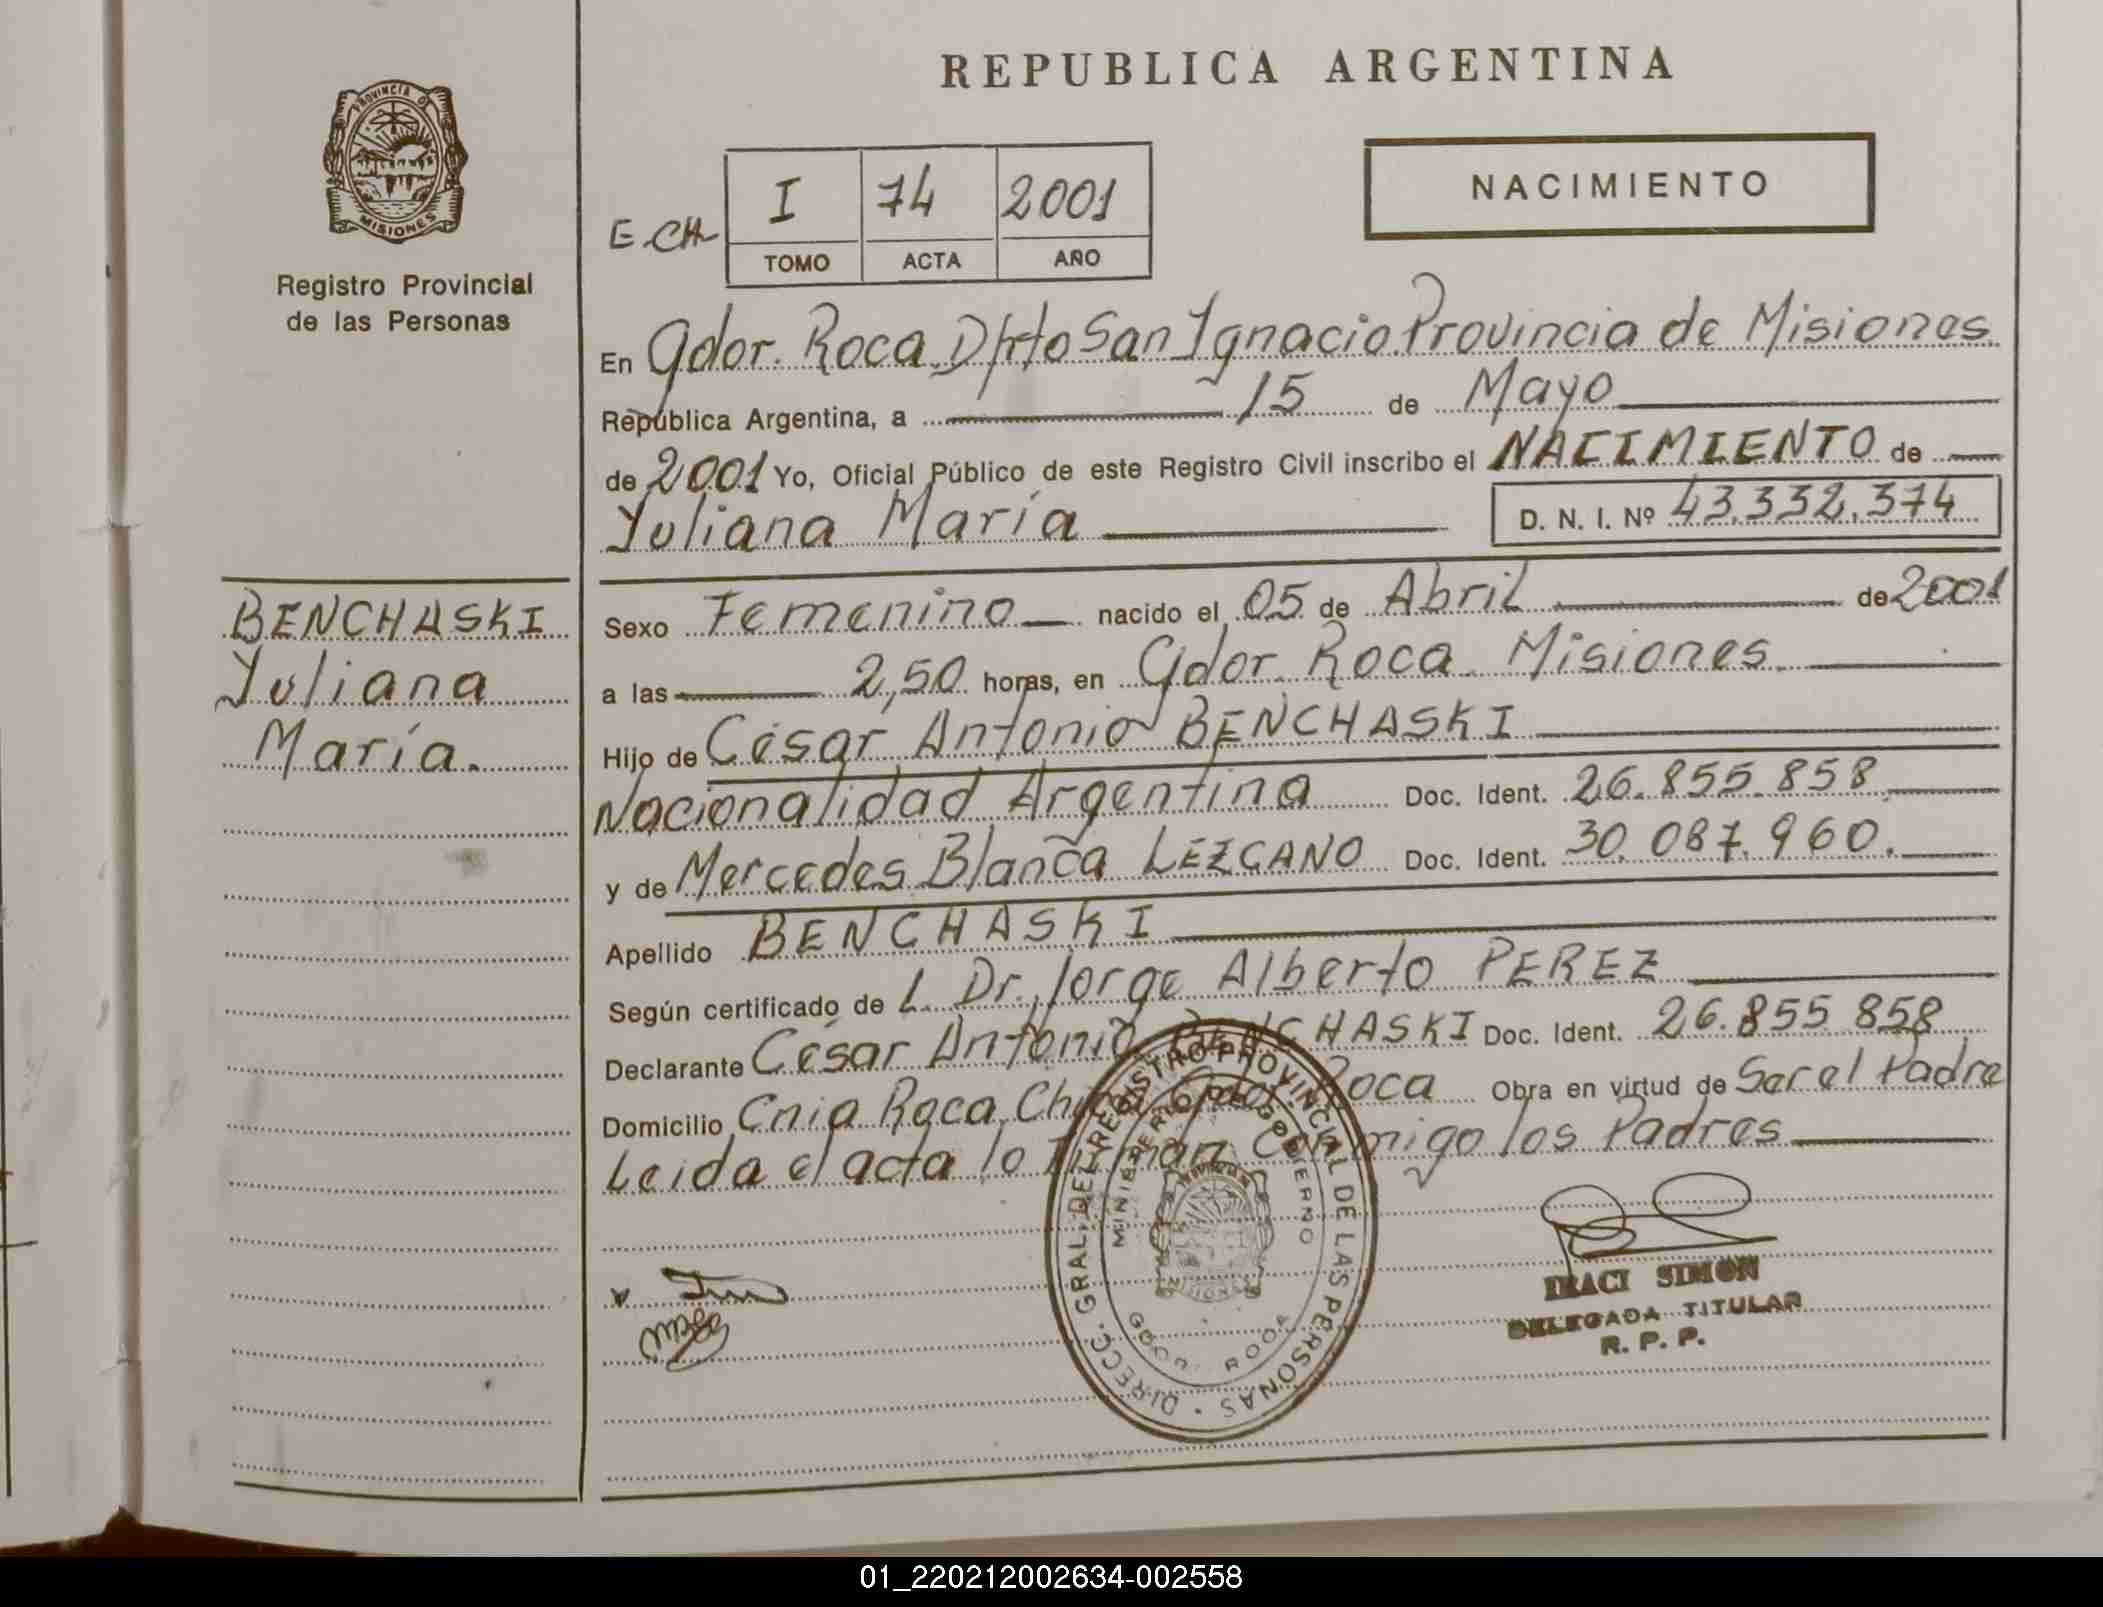 REPUBLICA ARGENTINA
PROVINCIA DE
MISIONES
Registro Provincial
de las Personas
NACIMIENTO
E.CH
I 74 2001
TOMO ACTA AÑO
En Gdor. Roca Dpto San Ignacio Provincia de Misiones
República Argentina, a 15 de Mayo
de 2001 Yo, Oficial Público de este Registro Civil inscribo el NACIMIENTO de
Yuliana María D. N. I. Nº 43.332.374
BENCHASKI
Yuliana
María.
Sexo Femenino nacido el 05 de Abril de 2001
a las 2,50 horas, en Gdor. Roca Misiones
Hijo de César Antonio BENCHASKI
Nacionalidad Argentina Doc. Ident. 26.855.858
y de Mercedes Blanca LEZCANO Doc. Ident. 30.087.960.
Apellido BENCHASKI
Según certificado de L. Dr. Jorge Alberto PEREZ
Declarante César Antonio BENCHASKI Doc. Ident. 26.855 858
Domicilio Cnia Roca Gdor. Roca Obra en virtud de Ser el Padre
Leida el acta lo Firman Conmigo los Padres
DIRECC. GRAL. DEL REGISTRO PROVINCIAL DE LAS PERSONAS
MINISTERIO DE GOBIERNO
MISIONES
GDOR. ROCA
IRACI SIMON
DELEGADA TITULAR
R. P. P.
01_220212002634-002558